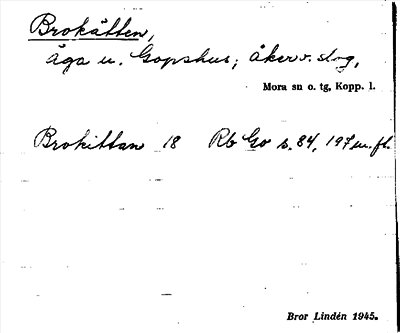 Brokätten,
äga u. Gopshus; åker o. slog,
Mora sn o. tg, Kopp. l.
Brokittan 18 Rb Go s. 84, 197 m. fl.
Bror Lindén 1945.